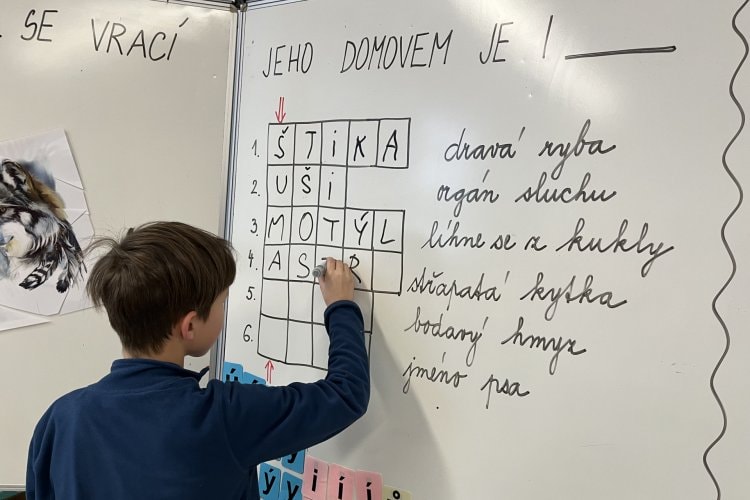 SE VRACÍ
JEHO DOMOVEM JE !
1. ŠTiKA dravá ryba
2. UŠi orgán sluchu
3. MOTÝL líhne se z kukly
4. AS R střapatá kytka
5. bodavý hmyz
6. jméno psa
ý y i í í